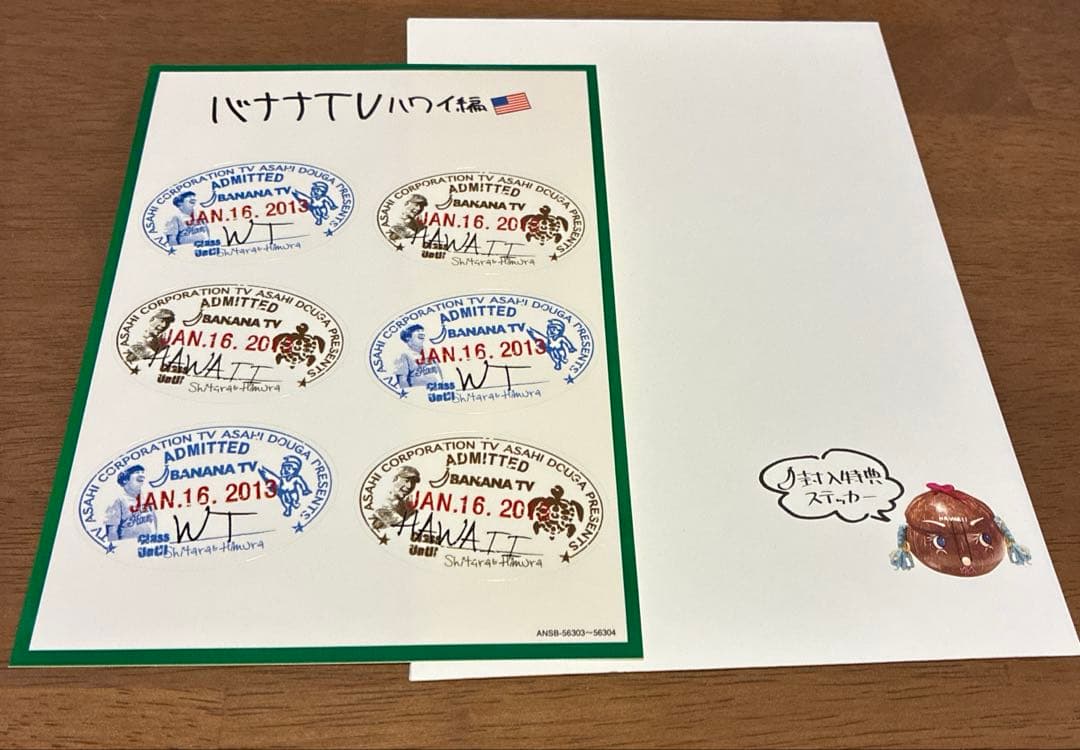 バナナTV ハワイ編
TV ASAHI CORPORATION TV ASAHI DOUGA PRESENTS
ADMITTED
BANANA TV
JAN.16. 2013
WT
Class
Until
Shitara&Himura
TV ASAHI CORPORATION TV ASAHI DOUGA PRESENTS
ADMITTED
BANANA TV
JAN.16. 20
HAWAII
Class
Until
Shitara&Himura
TV ASAHI CORPORATION TV ASAHI DOUGA PRESENTS
ADMITTED
BANANA TV
JAN.16. 20
HAWAII
Class
Until
Shitara&Himura
TV ASAHI CORPORATION TV ASAHI DOUGA PRESENTS
ADMITTED
BANANA TV
JAN.16. 2013
WT
Class
Until
Shitara&Himura
TV ASAHI CORPORATION TV ASAHI DOUGA PRESENTS
ADMITTED
BANANA TV
JAN.16. 2013
WT
Class
Until
Shitara&Himura
TV ASAHI CORPORATION TV ASAHI DOUGA PRESENTS
ADMITTED
BANANA TV
JAN.16. 20
HAWAII
Class
Until
Shitara&Himura
ANSB-56303～56304
封入特典
ステッカー
HAWAII